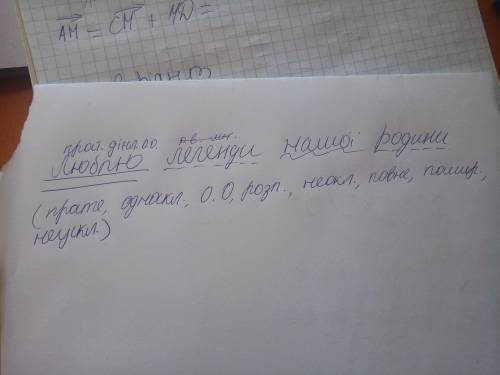 AM = CM + MD =
прост. дієсл.
Люблю легенди нашої родини
(просте, односкл., О.О, розп., неокл., повне, пошир.,
неускл.)